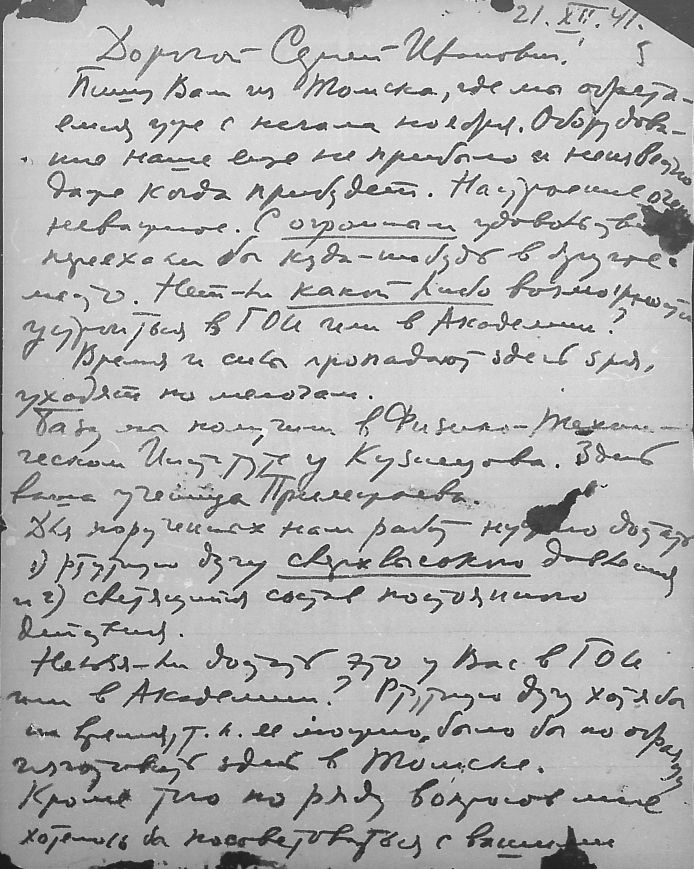 21.XII.41.
5
Дорогой Сергей Иванович!
Пишу Вам из Томска, где мы обрета-
емся уже с начала ноября. Оборудова-
ние наше еще не прибыло и неизвестно
даже когда прибудет. Настроение очень
неважное. С огромным удовольствием
переехали бы куда-нибудь в другое
место. Нет-ли какой либо возможности
устроиться в ГОИ или в Академии?
Время и силы пропадают здесь зря,
уходят по мелочам.
Базу мы получили в Физико-Техни-
ческом Институте у Кузнецова. Здесь
ваша ученица Прилежаева.
Для порученных нам работ нужно достать
1) ртутную дугу сверхвысокого давления
и 2) светящийся состав постоянного
действия.
Нельзя-ли достать это у Вас в ГОИ
или в Академии? Ртутную дугу хотя бы
на время, т.к. ее можно было бы по образцу
изготовить здесь в Томске.
Кроме того по ряду вопросов мне
хотелось бы посоветоваться с вашими